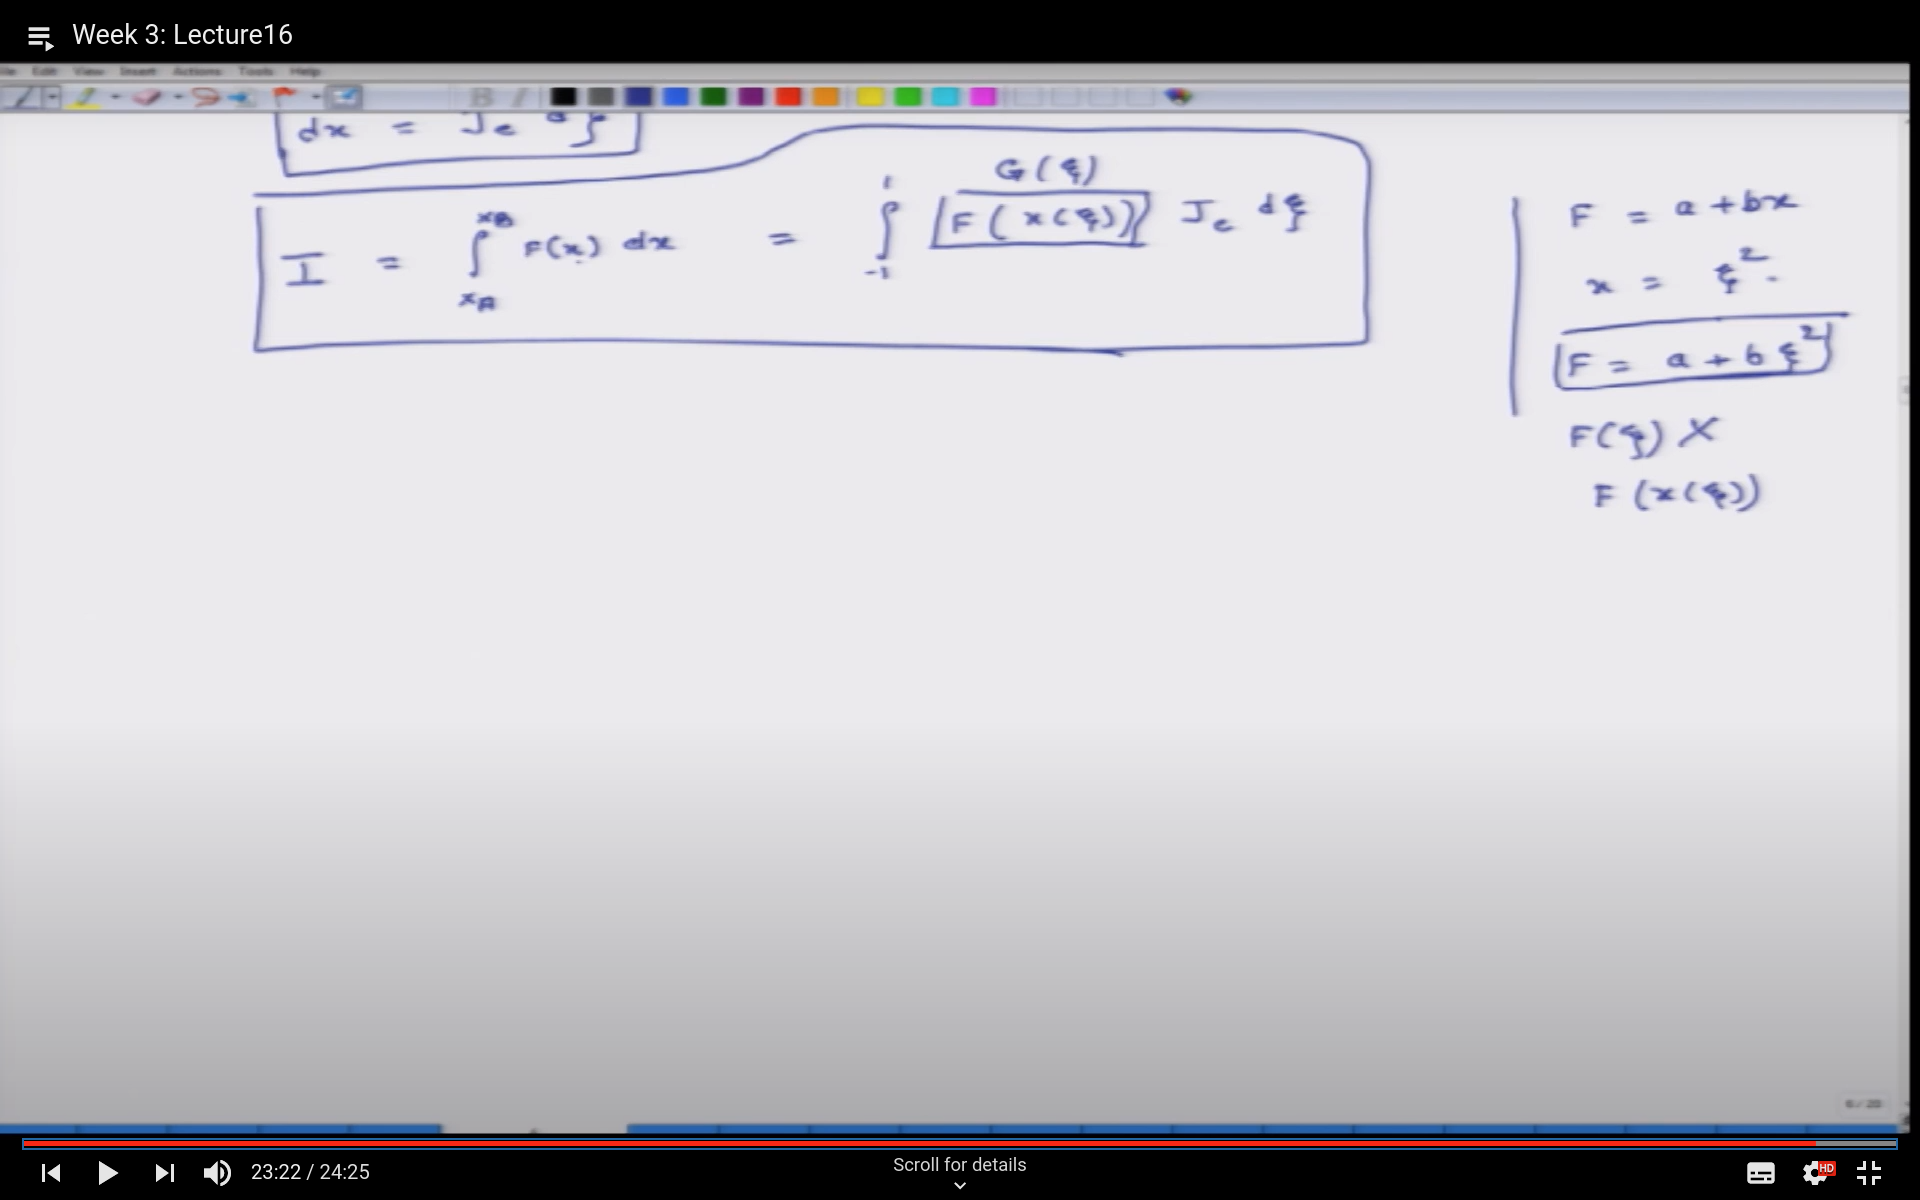 Week 3: Lecture16
File Edit View Insert Actions Tools Help
B I
dx = J_e dξ
I = ∫_{x_A}^{x_B} F(x) dx = ∫_{-1}^{1} F(x(ξ)) J_e dξ
G(ξ)
F = a + bx
x = ξ².
F = a + b ξ²
F(ξ) X
F(x(ξ))
6 / 20
23:22 / 24:25
Scroll for details
HD